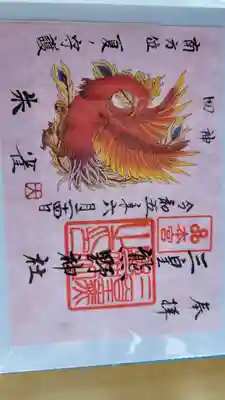 奉拝
本宮
三皇熊野神社
令和五年六月二十四日
四神
朱雀
南方位 夏ノ守護